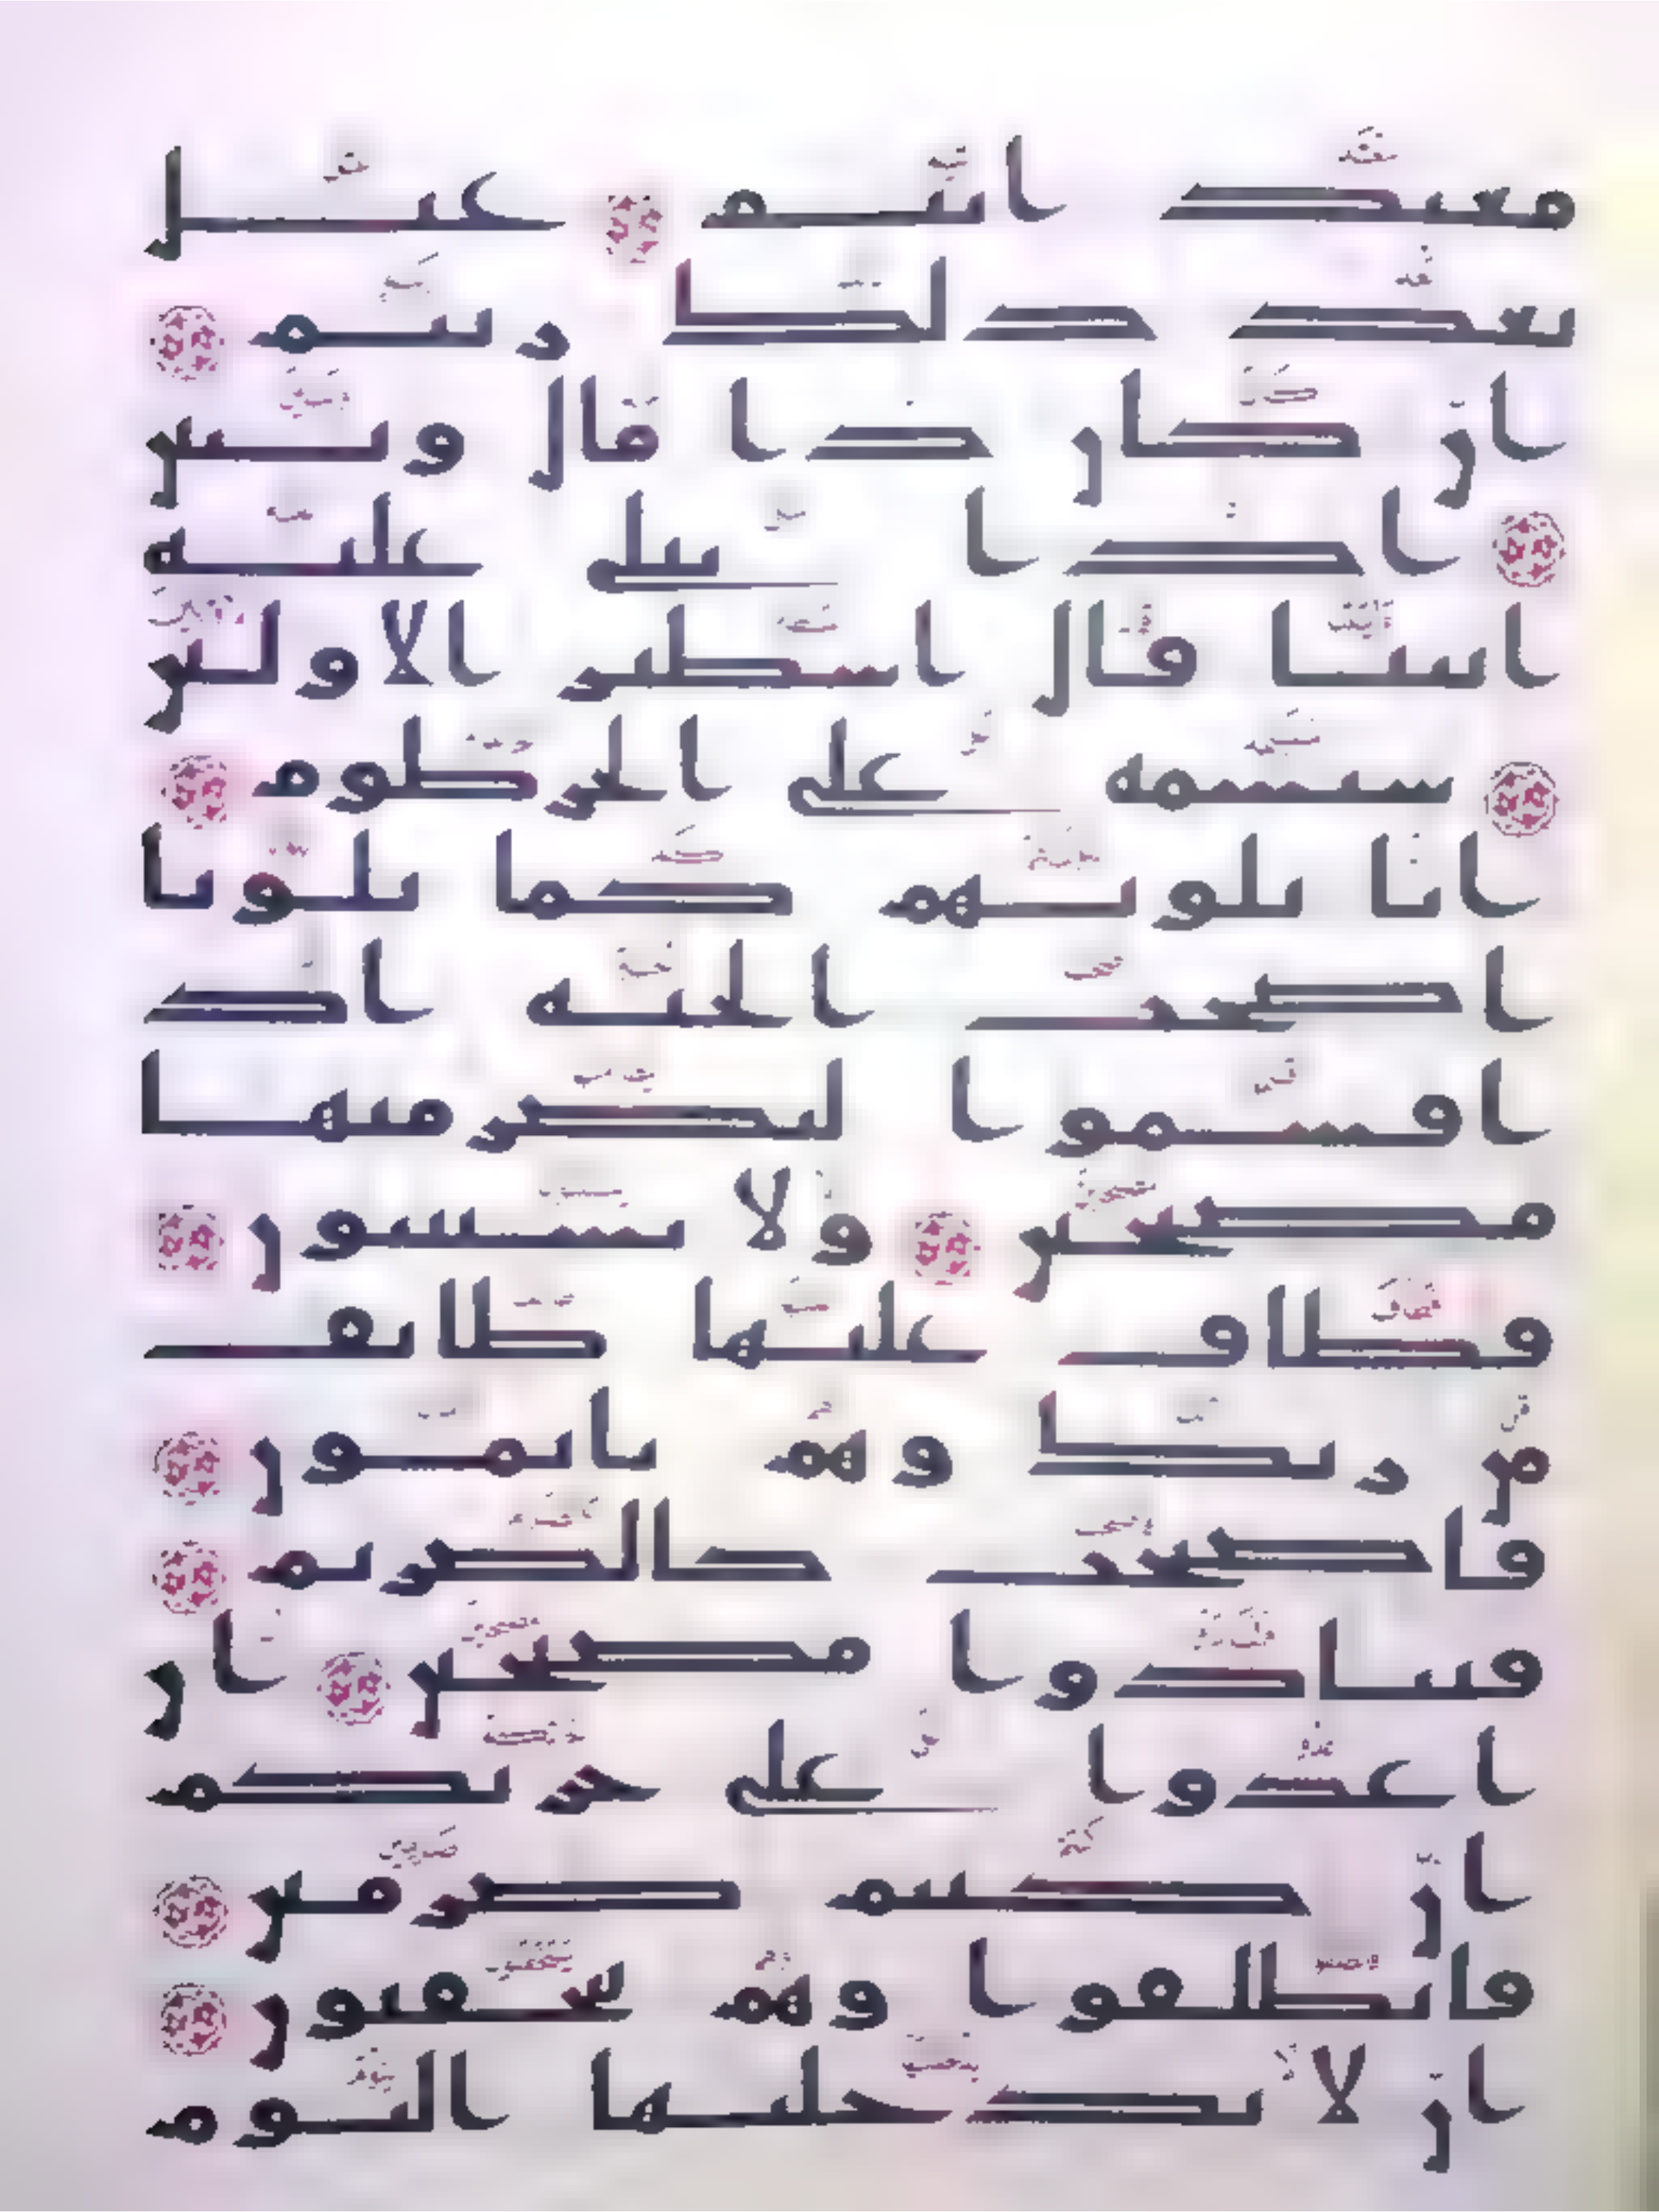 معتد اثيم عتل
بعد ذلك زنيم
ان كان ذا مال وبنين
اذا تتلى عليه
ايتنا قال اسطير الاولين
سنسمه على الخرطوم
انا بلونهم كما بلونا
اصحب الجنة اذ
اقسموا ليصرمنها
مصبحين ولا يستثنون
فطاف عليها طائف
من ربك وهم نائمون
فاصبحت كالصريم
فتنادوا مصبحين ان
اغدوا على حرثكم
ان كنتم صرمين
فانطلقوا وهم يتخفتون
ان لا يدخلنها اليوم